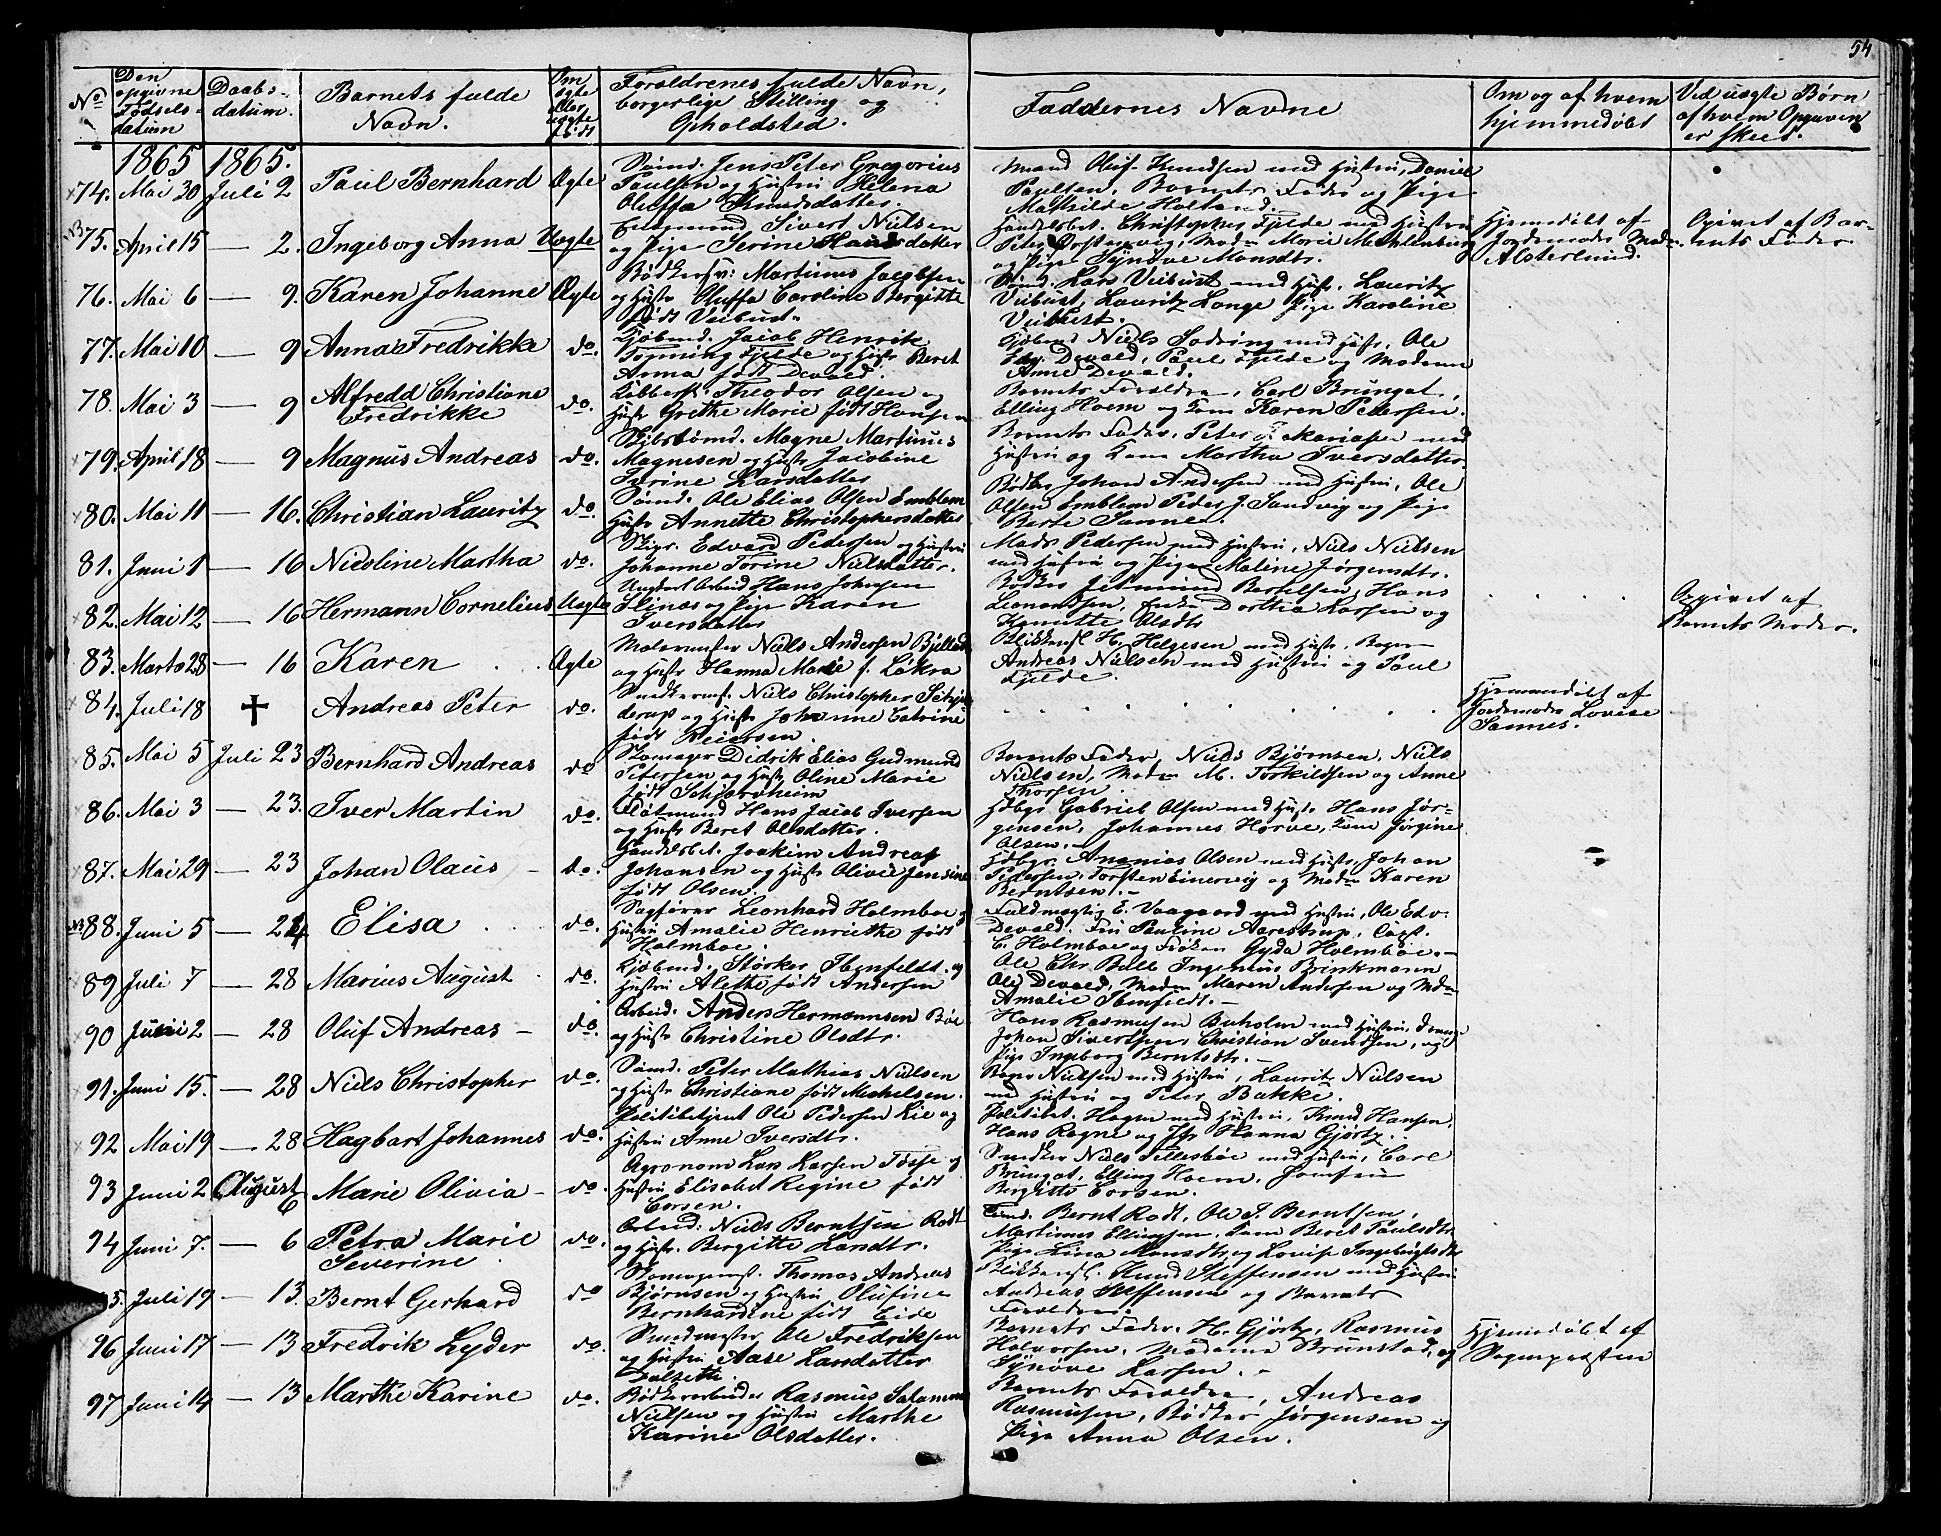 54
No
Den opgivne Fødsels-datum
Daabs-datum.
Barnets fulde Navn.
Om ægte eller uægte født
Forældrenes fulde Navn, borgerlige Stilling og Opholdsted.
Faddernes Navne
Om og af hvem hjemmedøbt
Ved uægte Børn af hvem Opgaven er skeet.
1865 1865.
74. Mai 30 Juli 2 Paul Bernhard Ægte
Sømd. Jens Peter Gregorius
Paulsen og Hustri Helena
Oluffa Knudsdatter.
Mand Oluf Knudsen med Hustri, Daniel
Paulsen, Barnets Fader og Pige
Mathilde Holland.
NB 75. April 15 — 2. Ingeborg Anna Uægte
Ungmand Sivert Nielsen
og Pige Serine Hansdatter
Handelsbet. Christopher Fjelde med Hustri
Peter Torstenvig, Madm Marie Mechlenburg
og Pige Synøve Monsdtr.
Hjemmedøbt af
Jordemoder Madm
Alsterlund.
Opivet af Bar-
nets Fader
76. Mai 6 — 9. Karen Johanne Ægte
Bødkersv: Martinus Jacobsen
og Hustr Oluffa Caroline Bergitte
født Veibust.
Sømd. Lars Veibust med Hustr. Lauritz
Veibust, Lauritz Lange Pige Karoline
Veibust.
77. Mai 10 — 9 Anna Fredrikke do.
Kjøbmd. Jacob Henrik
Tønning Fjelde og Hustr Beret
Anna født Devold.
Kjøbmd Niels Sodring med Hustr, Ole
Edv. Devold, Paul Fjelde og Madame
Anne Devold.
78. Mai 3 — 9 Alfredd Christiane Fredrikke do.
Kobbersl. Theodor Olsen og
Hustr Grethe Marie født Hansen
Barnets Forældre, Carl Brungot,
Elling Hoem og Kone Karen Petersen.
79. April 18 — 9 Magnus Andreas do.
Skibstømd. Magne Martinus
Magnesen og Hustr Jacobine
Serine Larsdatter
Barnets Fader, Peter Zakariasen med
Hustri og Kone Martha Iversdatter.
80. Mai 11 — 16. Christian Lauritz do.
Sømd. Ole Elias Olsen Emblem
Hustr Annette Christophersdatter
Bødker Johan Andersen med Hustri, Ole
Olsen Emblem Peder J. Sandvig og Pige
Berte Sanne.
81. Juni 1 — 16 Nicoline Martha do.
Skipr. Edvard Pedersen og Hustri
Johanne Torine Nielsdatter.
Mads Pedersen med Hustri, Niels Nielsen
med Hustri og Pige Maline Jørgensdtr.
82. Mai 12 — 16 Hermann Cornelius Uægte
Ungkarl Arbeid Hans Johnsen
og Pige Karen
Iversdatter
Bødker Bertelsen, Hans
Leonardsen, Enke Dorthea Larsen og
Olsdtr
Opivet af
Barnets Moder.
83. Marts 28 — 16 Karen Ægte
Malermester Niels Andersen
og Hustr Hanna Marie f. Løkra
Blikkensl H. Helgesen med Hustr, Bager
Andreas Nielsen med Hustri og Paul
Fjelde.
84. Juli 18 † Andreas Peter do.
Snedkermst. Niels Christopher Schjel-
derup og Hustr Johanne Catrine
født Reiersen.
Hjemmedøbt af
Jordemoder Lovise
Sannes.
85. Mai 5 Juli 23 Bernhard Andreas do
Skomager Didrik Elias Gudmund
Petersen og Hustr Oline Marie
født Schjarvheim
Barnets Fader, Niels Bjørnsen, Niels
Nielsen, Madm M. Torkildsen og Anne
Thorsen.
86. Mai 3 — 23. Iver Martin do.
Flotmand Hans Jacob Iversen
og Hustr Beret Olsdatter.
Hdbgr Gabriel Olsen med Hustr Hans Jør-
gensen, Johannes Horve, Kone Jørgine
Olsen.
87. Mai 29 — 23 Johan Olaus do.
Handelsbet. Joakim Andreas
Johansen og Hustr Olivie Jensine
født Olsen.
Hdbgr. Ananias Olsen med Hustr, Johan
Pedersen, Torsten Einervig og Madm Karen
Berntsen.
NB 88. Juni 5 — 24 Elisa do.
Sagfører Leonhard Holmboe og
Hustri Amalie Henriethe født
Holmboe.
Fuldmægtig E. Vaagaard med Hustri, Ole Edv.
Devold, Frøi Pauline Aarestrup, Capt.
C. Holmboe og Frøken Gyda Holmboe.
89 Juli 7 — 28 Marius August do.
Kjøbmd. Størker Ibenfeldt og
Hustri Alethe født Andersen
Ole Chr. Bull Ingenius Brinkmann
Ole Devold, Madm Maren Andersen og Mdm
Amalie Ibenfeldt.
90 Juni 2 — 28 Oluf Andreas do.
Arbeid. Anders Hermannsen Bøe
og Hustr Christine Olsdtr.
Hans Rasmusen Buholm med Hustri, Dreng
Johan Sivertsen, Christian Svendsen, og
Pige Ingeborg Berntsdtr.
91. Juni 15. — 28 Niels Christopher do.
Sømd. Peter Mathias Nielsen
og Hustr Christiane født Michelsen.
Hans Nielsen med Hustri, Lauritz Nielsen
med Hustri og Peter Bakke.
92 Mai 19 — 28 Hagbart Johannes do.
Politibetjent Ole Pedersen Lie og
Hustri Anne Iversdtr.
Politibet. Hagen med Hustri, Knud Hansen,
Hans Rogne og Jfr Hanna Gjørtz.
93 Juni 2 August 6 Marie Olivia do.
Agronom Lars Larsen Tosse og
Hustri Elisabet Regine født
Corsen.
Snedker Niels Tellesbøe med Hustri, Carl
Brungot, Elling Hoem, Jomfru
Bergitte Corsen.
94 Juni 7. — 6 Petra Marie Severine do.
Arbeid. Niels Berntsen Rødt
og Hustr. Bergitte Landtr.
Tømd. Bernt Rødt, Ole P. Berntsen,
Martinus Ellingsen, Kone Beret Paulsdtr
Pige Lina Monsdtr, og Lovise Ingebrigtsdtr
95. Juli 19 — 13. Bernt Gerhard do
Skomagermst. Thomas Andreas
Bjørnsen og Hustri Olufine
Bernhardine født Eide
Blikkensl. Knud Steffensen med Hustri
Andreas Steffensen og Barnets
Forældre.
96 Juni 17 — 13 Fredrik Lyder do.
Smedmester Ole Fredriksen
og Hustri Aase Larsdatter
Dalsette.
Barnets Fader, H. Gjørtz, Rasmus
Halvorsen, Madame Brunstad, og
Synøve Larsen.
Hjemmedøbt af
Sognepræsten
97 Juni 14 — 13 Marthe Karine do.
Bødkerarbeider Rasmus Salamon
Nielsen og Hustri Marthe
Karine Olsdatter.
Barnets Forældre, Andreas
Rasmusen, Bødker Jørgensen og
Pige Anna Olsen.